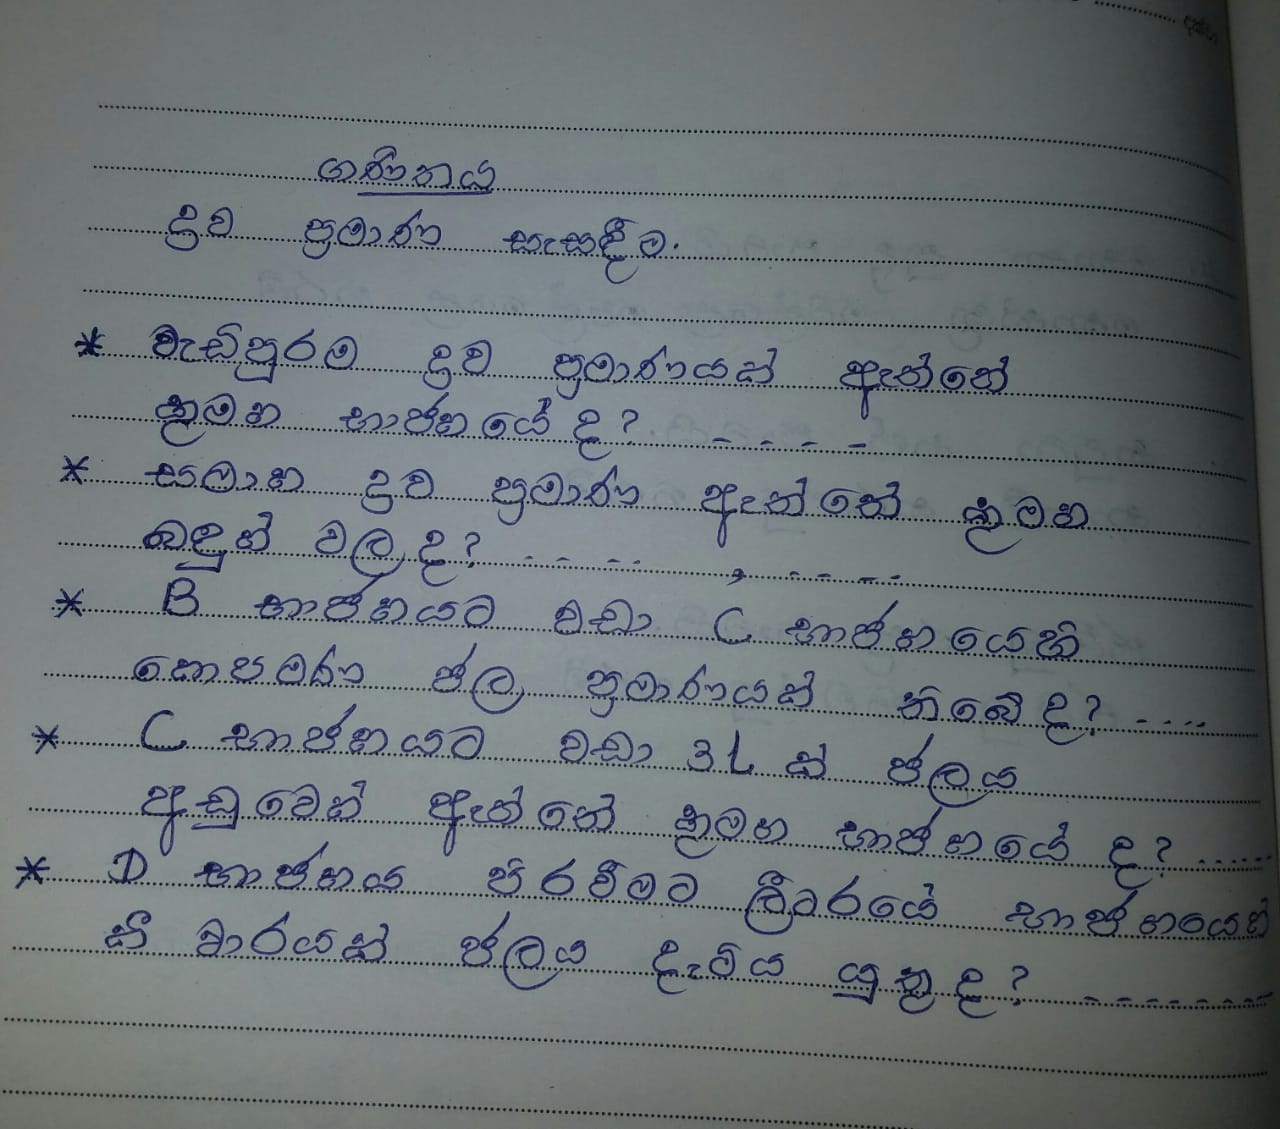 ගණිතය
ද්‍රව ප්‍රමාණ සැසඳීම.
* වැඩිපුරම ද්‍රව ප්‍රමාණයක් ඇත්තේ
කුමන භාජනයේ ද? - - - -
* සමාන ද්‍රව ප්‍රමාණ ඇත්තේ කුමන
බඳුන් වල ද? - - - - , - - - -
* B භාජනයට වඩා C භාජනයෙහි
කොපමණ ජල ප්‍රමාණයක් තිබේ ද? ....
* C භාජනයට වඩා 3L ක් ජලය
අඩුවෙන් ඇත්තේ කුමන භාජනයේ ද? ......
* D භාජනය පිරවීමට ලීටරයේ භාජනයෙන්
කී වාරයක් ජලය දැමිය යුතුද? - - - - - - - -